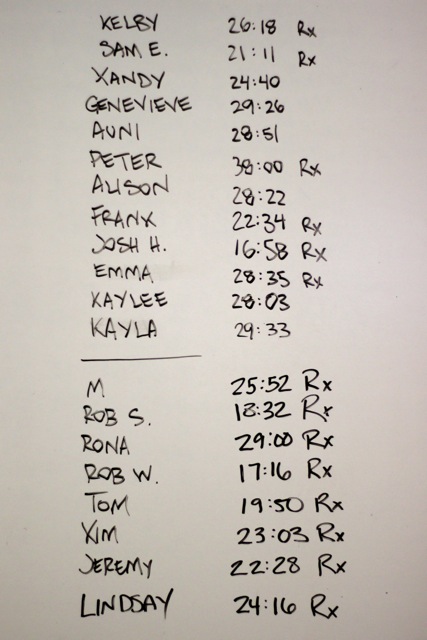 KELBY 26:18 Rx
SAM E. 21:11 Rx
XANDY 24:40
GENEVIEVE 29:26
AUNI 28:51
PETER 38:00 Rx
ALISON 28:22
FRANK 22:34 Rx
JOSH H. 16:58 Rx
EMMA 28:35 Rx
KAYLEE 28:03
KAYLA 29:33
M 25:52 Rx
ROB S. 18:32 Rx
RONA 29:00 Rx
ROB W. 17:16 Rx
TOM 19:50 Rx
KIM 23:03 Rx
JEREMY 22:28 Rx
LINDSAY 24:16 Rx